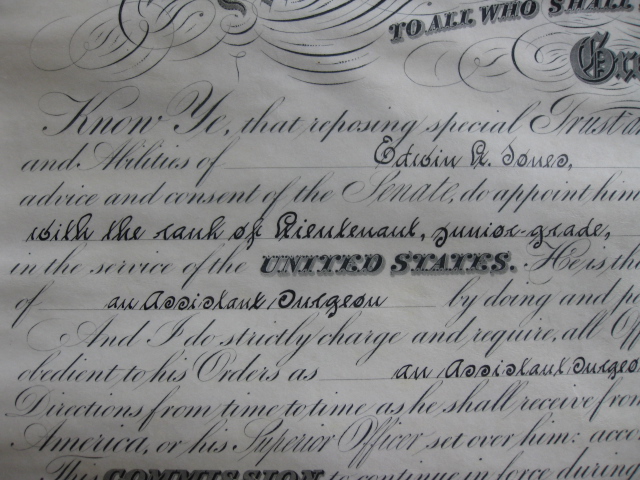 TO ALL WHO SHALL
Know Ye, that reposing special Trust
and Abilities of Edwin R. Jones,
advice and consent of the Senate, do appoint him
with the rank of Lieutenant, junior-grade,
in the service of the UNITED STATES. He is
of an Assistant Surgeon by doing and
And I do strictly charge and require, all
obedient to his Orders as an Assistant Surgeo
Directions from time to time as he shall receive from
America, or his Superior Officer set over him:
This COMMISSION to continue in force during